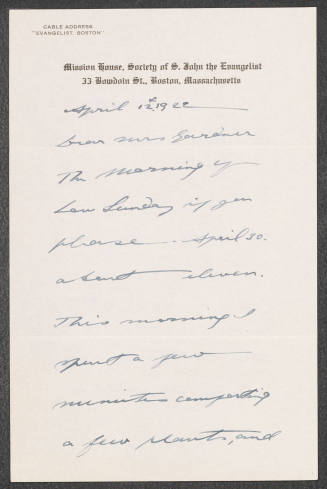 CABLE ADDRESS
"EVANGELIST, BOSTON"
Mission House, Society of S. John the Evangelist
33 Bowdoin St., Boston, Massachusetts
April 12, 1922
Dear Mrs Gardner
The Morning of
Low Sunday if you
please - April 30.
about eleven.
This morning I
spent a few
minutes comforting
a few plants, and